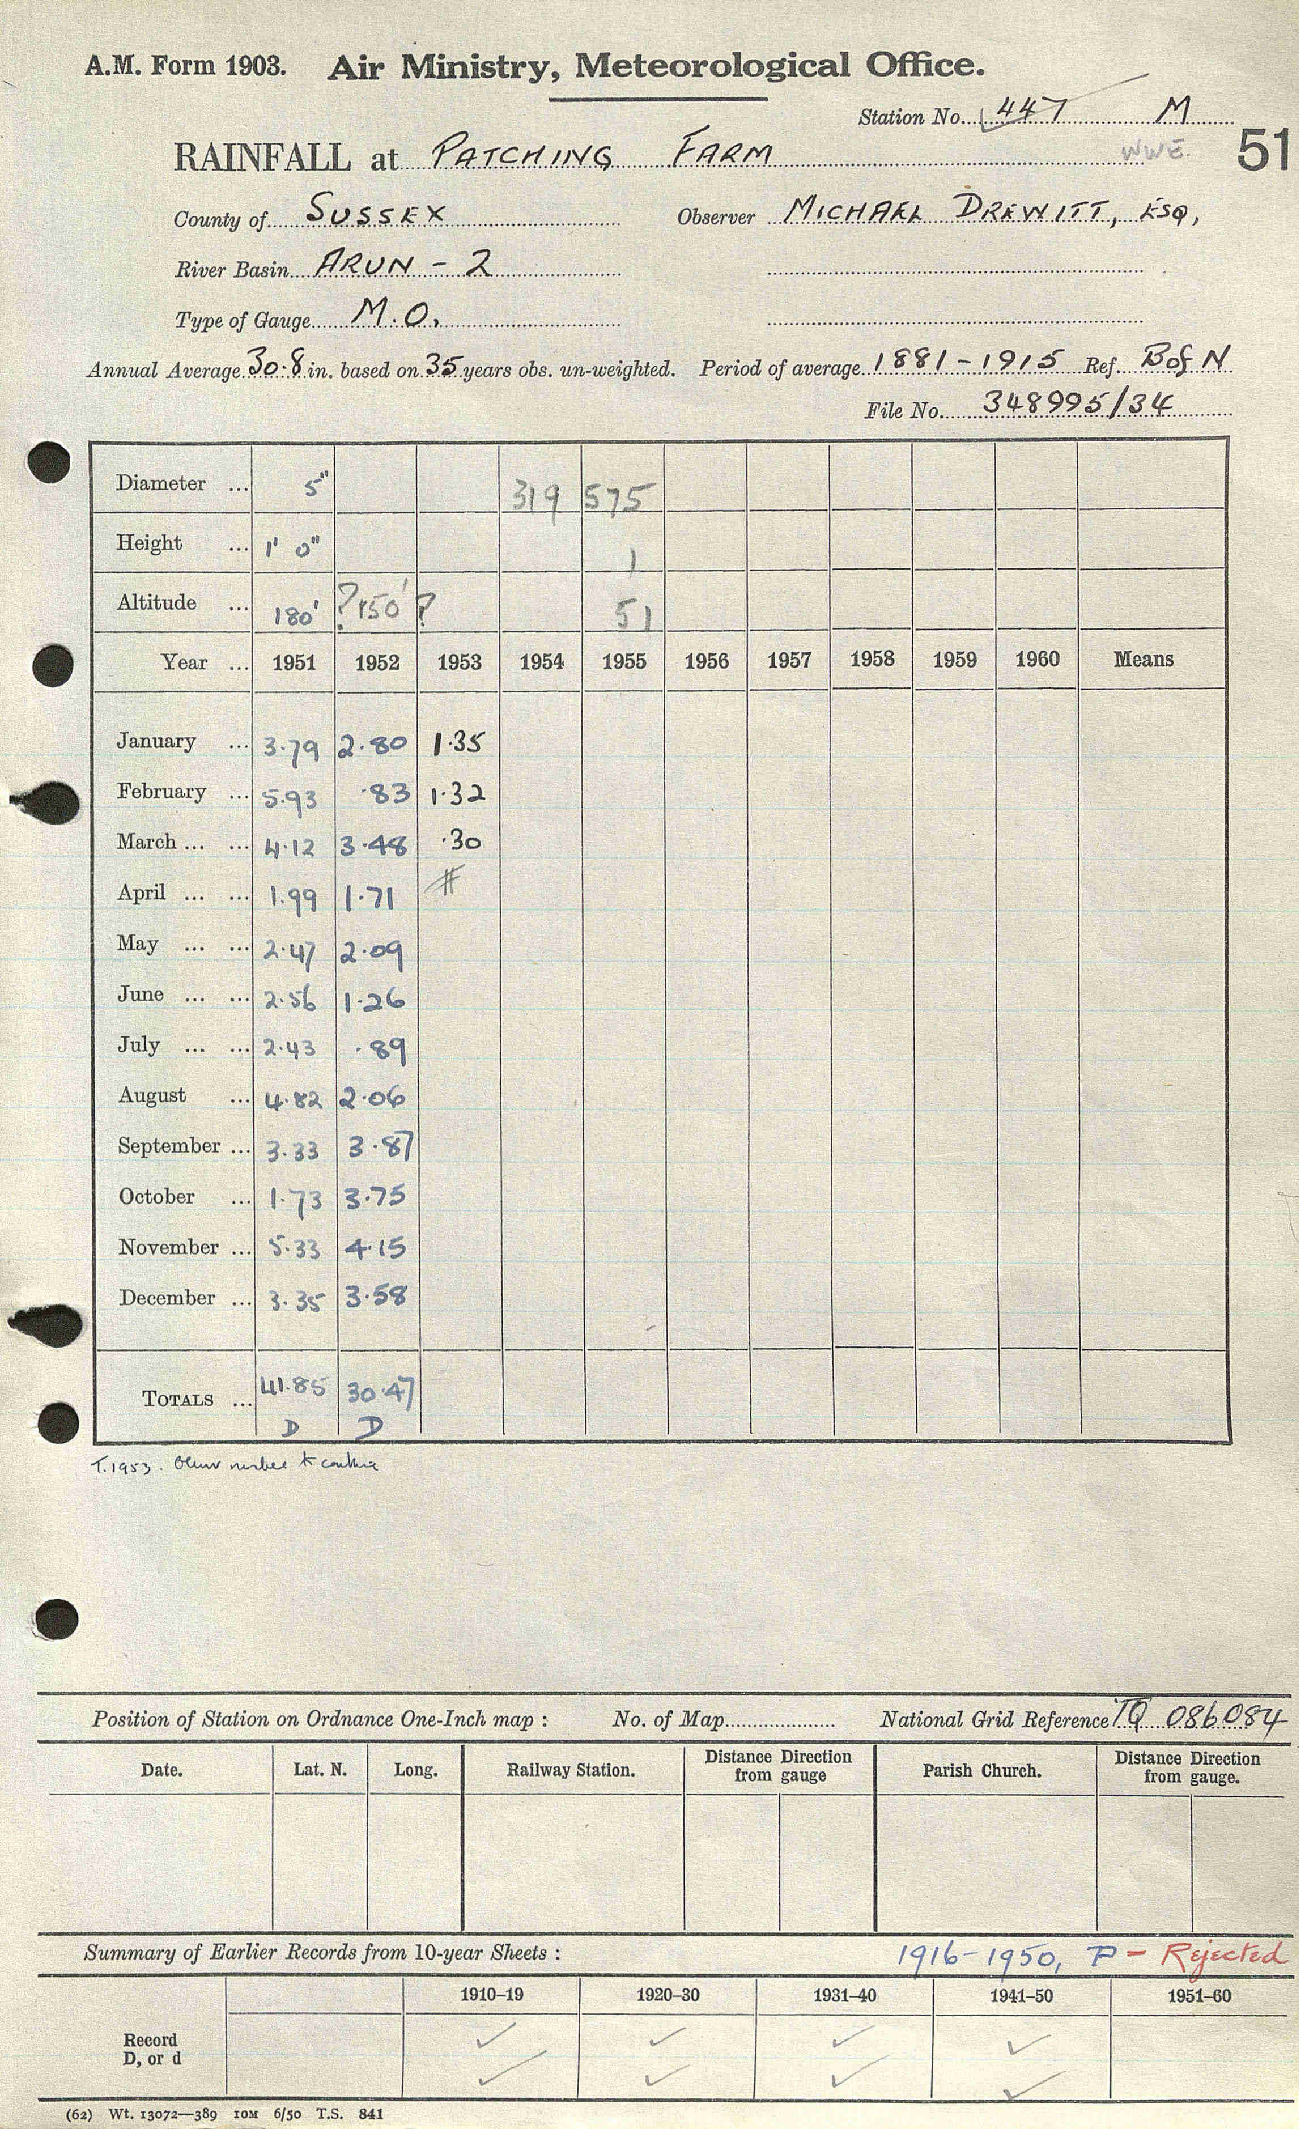 A.M. Form 1903. Air Ministry, Meteorological Office.
Station No. 447 M
RAINFALL at PATCHING FARM WWE 51
County of SUSSEX Observer MICHAEL DREWITT, ESQ,
River Basin ARUN - 2
Type of Gauge M.O.
Annual Average 30.8 in. based on 35 years obs. un-weighted. Period of average 1881-1915 Ref. B of N
File No. 348995/34
Diameter ... 5" 319 575
Height ... 1' 0" 1
Altitude ... 180' ? 150' ? 51
Year ... 1951 1952 1953 1954 1955 1956 1957 1958 1959 1960 Means
January ... 3.79 2.80 1.35
February ... 5.93 .83 1.32
March ... ... 4.12 3.48 .30
April ... ... 1.99 1.71 #
May ... ... 2.47 2.09
June ... ... 2.56 1.26
July ... ... 2.43 .89
August ... 4.82 2.06
September ... 3.33 3.87
October ... 1.73 3.75
November ... 5.33 4.15
December ... 3.35 3.58
TOTALS ... 41.85 30.47
D D
T.1953. to continue
Position of Station on Ordnance One-Inch map : No. of Map National Grid Reference TQ 086084
Date. Lat. N. Long. Railway Station. Distance Direction from gauge Parish Church. Distance Direction from gauge.
Summary of Earlier Records from 10-year Sheets : 1916-1950, P - Rejected
1910–19 1920–30 1931–40 1941–50 1951–60
Record ✓ ✓ ✓ ✓
D, or d ✓ ✓ ✓ ✓
(62) Wt. 13072—389 10M 6/50 T.S. 841